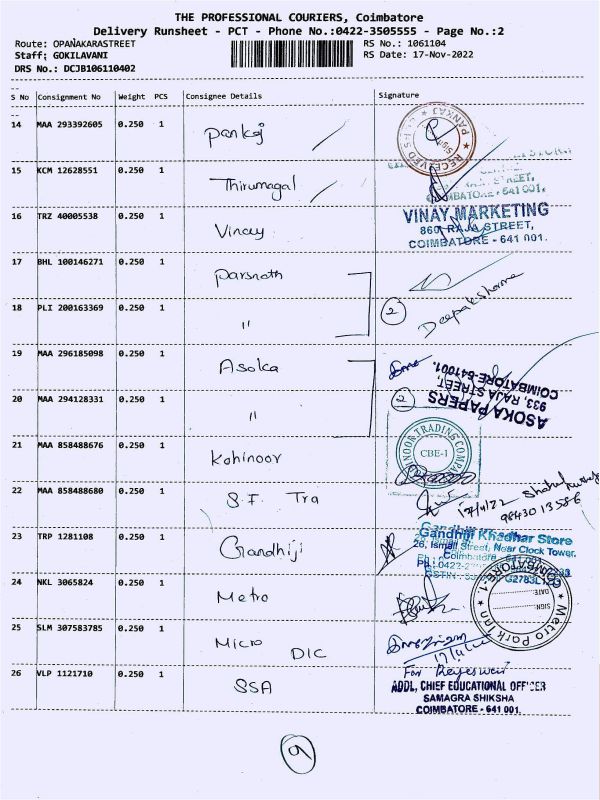 THE PROFESSIONAL COURIERS, Coimbatore
Delivery Runsheet - PCT - Phone No.:0422-3505555 - Page No.:2
Route: OPANAKARASTREET
RS No.: 1061104
Staff: GOKILAVANI
RS Date: 17-Nov-2022
DRS No.: DCJB106110402
S No Consignment No Weight PCS Consignee Details Signature
14 MAA 293392605 0.250 1 Pankaj
RECEIVED PANKAJ
15 KCM 12628551 0.250 1 Thirumagal
STREET,
COIMBATORE - 641 001.
16 TRZ 40005538 0.250 1 Vinay
VINAY MARKETING
860, RAJA STREET,
COIMBATORE - 641 001.
17 BHL 100146271 0.250 1 Parsnath
18 PLI 200163369 0.250 1 "
2
Deepak Sharma
19 MAA 296185098 0.250 1 Asoka
20 MAA 294128331 0.250 1 "
2
ASOKA PAPERS
933, RAJA STREET,
COIMBATORE-641001.
21 MAA 858488676 0.250 1 Kohinoor
KOHINOOR TRADING COMPANY
CBE-1
22 MAA 858488680 0.250 1 S.F. Tra
17/11/22
98430 13586
23 TRP 1281108 0.250 1 Gandhiji
Gandhiji Khadhar Store
26, Ismail Street, Near Clock Tower,
Coimbatore
24 NKL 3065824 0.250 1 Metro
Metro Park Inn
COIMBATORE-1
SIGN.
DATE:
25 SLM 307583785 0.250 1 Micro DIC
26 VLP 1121710 0.250 1 SSA
For
ADDL, CHIEF EDUCATIONAL OFFICER
SAMAGRA SHIKSHA
COIMBATORE - 641 001.
9